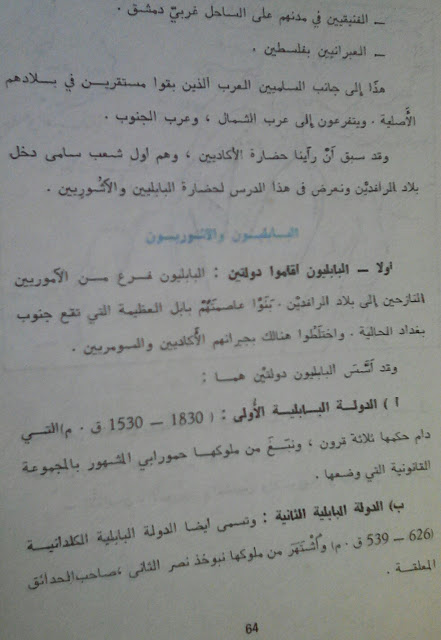 ــ الفنيقيين في مدنهم على الساحل غربيّ دمشق .
ــ العبرانيين بفلسطين .
هذا إلى جانب الساميين العرب الذين بقوا مستقرين في بلادهم
الأصلية . ويتفرعون إلى عرب الشمال ، وعرب الجنوب .
وقد سبق أنْ رأينا حضارة الأكاديين ، وهم اول شعب سامى دخل
بلاد الرافديْن ونعرض فى هذا الدرس لحضارة البابليين والآشوريين .
البابليون والآشوريون
اولا ــ البابليون أقاموا دولتين : البابليون فرع من الآموريين
النازحين إلى بلاد الرافديْن . بَنَوْا عاصمتَهُمْ بابل العظيمة التي تقع جنوب
بغداد الحالية . واختلَطُوا هنالك بجيرانهم الأكاديين والسومريين .
وقد أسَّسَ البابليون دولتيْن همـا :
أ ) الدولة البابلية الأولى : ( 1830 ــ 1530 ق . م) التي
دام حكمها ثلاثة قرون ، ونبَغَ من ملوكها حمورابي المشهور بالمجموعة
القانونية التي وضعها .
ب) الدولة البابلية الثانية : وتسمى أيضا الدولة البابلية الكلدانية
(626 ــ 539 ق . م) وأشْتَهَرَ من ملوكها نبوخذ نصر الثانى ، صاحب الحدائق
المعلقة .
64